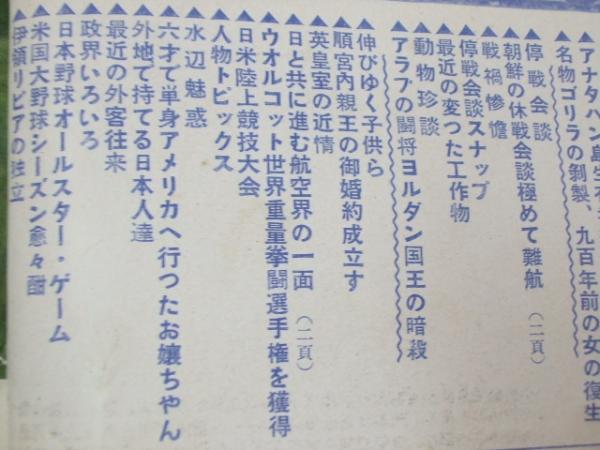 ▲アナタハン島生
▲名物ゴリラの剝製、九百年前の女の復生
▲停戦会談
▲朝鮮の休戦会談極めて難航（二頁）
▲戦禍惨憺
▲停戦会談スナップ
▲最近の変つた工作物
▲動物珍談
▲アラブの闘将ヨルダン国王の暗殺
▲伸びゆく子供ら
▲順宮内親王の御婚約成立す
▲英皇室の近情
▲日と共に進む航空界の一面（二頁）
▲ウオルコット世界重量拳闘選手権を獲得
▲日米陸上競技大会
▲人物トピックス
▲水辺魅惑
▲六才で単身アメリカへ行つたお嬢ちゃん
▲外地で持てる日本人達
▲最近の外客往来
▲政界いろいろ
▲日本野球オールスター・ゲーム
▲米国大野球シーズン愈々酣
▲伊領リビアの独立